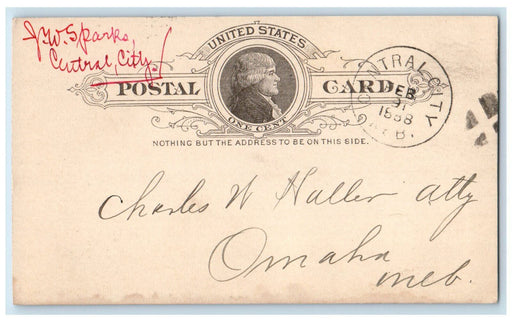 J.W. Sparks,
Central, City
UNITED STATES
POSTAL CARD
ONE CENT
NOTHING BUT THE ADDRESS TO BE ON THIS SIDE.
CENTRAL CITY
FEB
9
1888
NEB.
Charles W Haller atty
Omaha
Neb.